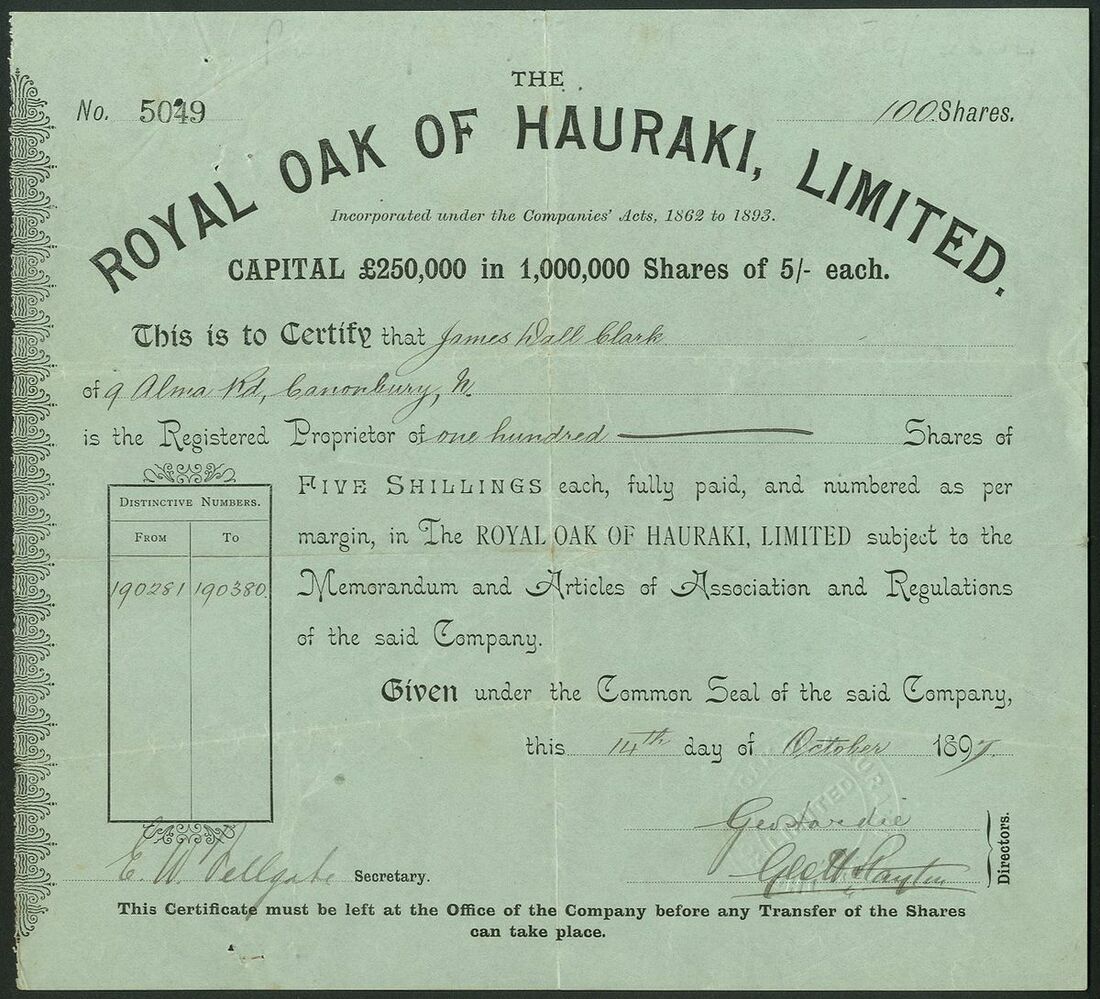 THE
No. 5049 100 Shares.
ROYAL OAK OF HAURAKI, LIMITED.
Incorporated under the Companies' Acts, 1862 to 1893.
CAPITAL £250,000 in 1,000,000 Shares of 5/- each.
This is to Certify that James Wall Clark
of 9 Alma Rd, Canonbury, N.
is the Registered Proprietor of one hundred Shares of
FIVE SHILLINGS each, fully paid, and numbered as per
margin, in The ROYAL OAK OF HAURAKI, LIMITED subject to the
Memorandum and Articles of Association and Regulations
of the said Company.
DISTINCTIVE NUMBERS.
FROM TO
190281 190380
Given under the Common Seal of the said Company,
this 14th day of October 1897.
Geo
Directors.
E. W. Fellgate Secretary.
This Certificate must be left at the Office of the Company before any Transfer of the Shares
can take place.
LIMITED